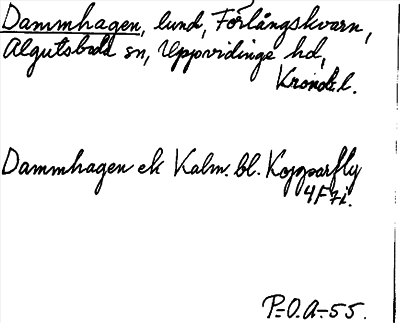 Dammhagen, lund, Förlångskvarn,
Algutsboda sn, Uppvidinge hd,
Kronob. l.
Dammhagen ek Kalm. bl. Kopparfly
4F 7i.
P.O.A-55.